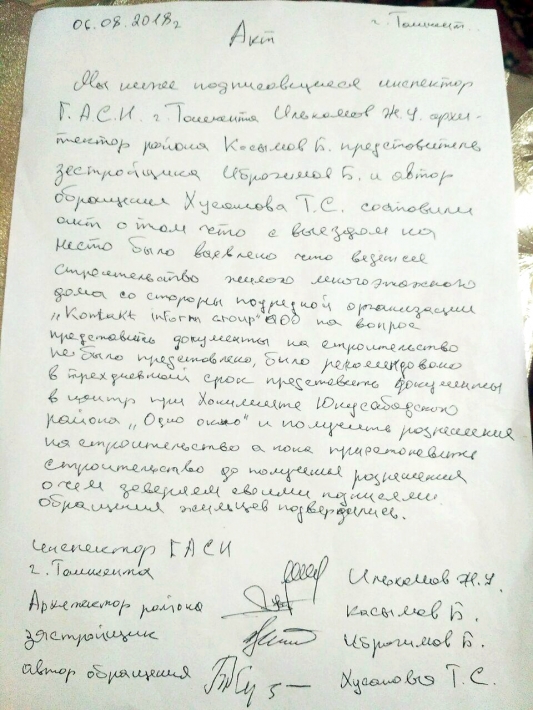 06.08.2018г г. Ташкент.
Акт
Мы ниже подписавшиеся инспектор
Г.А.С.Н. г. Ташкента Ильхамов Ж.У. архи-
тектор района Касымов Б. представитель
зестройщика Иброгимов Б. и автор
обращения Хусанова Т.С. составили
акт о том что с выездом на
место было выевлено что ведется
строительство жилого многоэтажного
дома со стороны подрядной организации
„Kontakt inform group" ООО на вопрос
представить документы на строительство
не было представлено, было рекомендовано
в трехдневный срок представить документы
в центр при Хокимияте Юнусабадского
района „Одно окно" и получить разрешения
на строительство а пока приостановить
строительство до получения разрешения
о чем доверяем своими подписями
обращения жильцев подвердились.
инспектор ГАСН
г. Ташкента Ильхамов Ж.У.
Архетектор района Касымов Б.
застройщик Иброгимов Б.
автор обращения Хусанова Т.С.